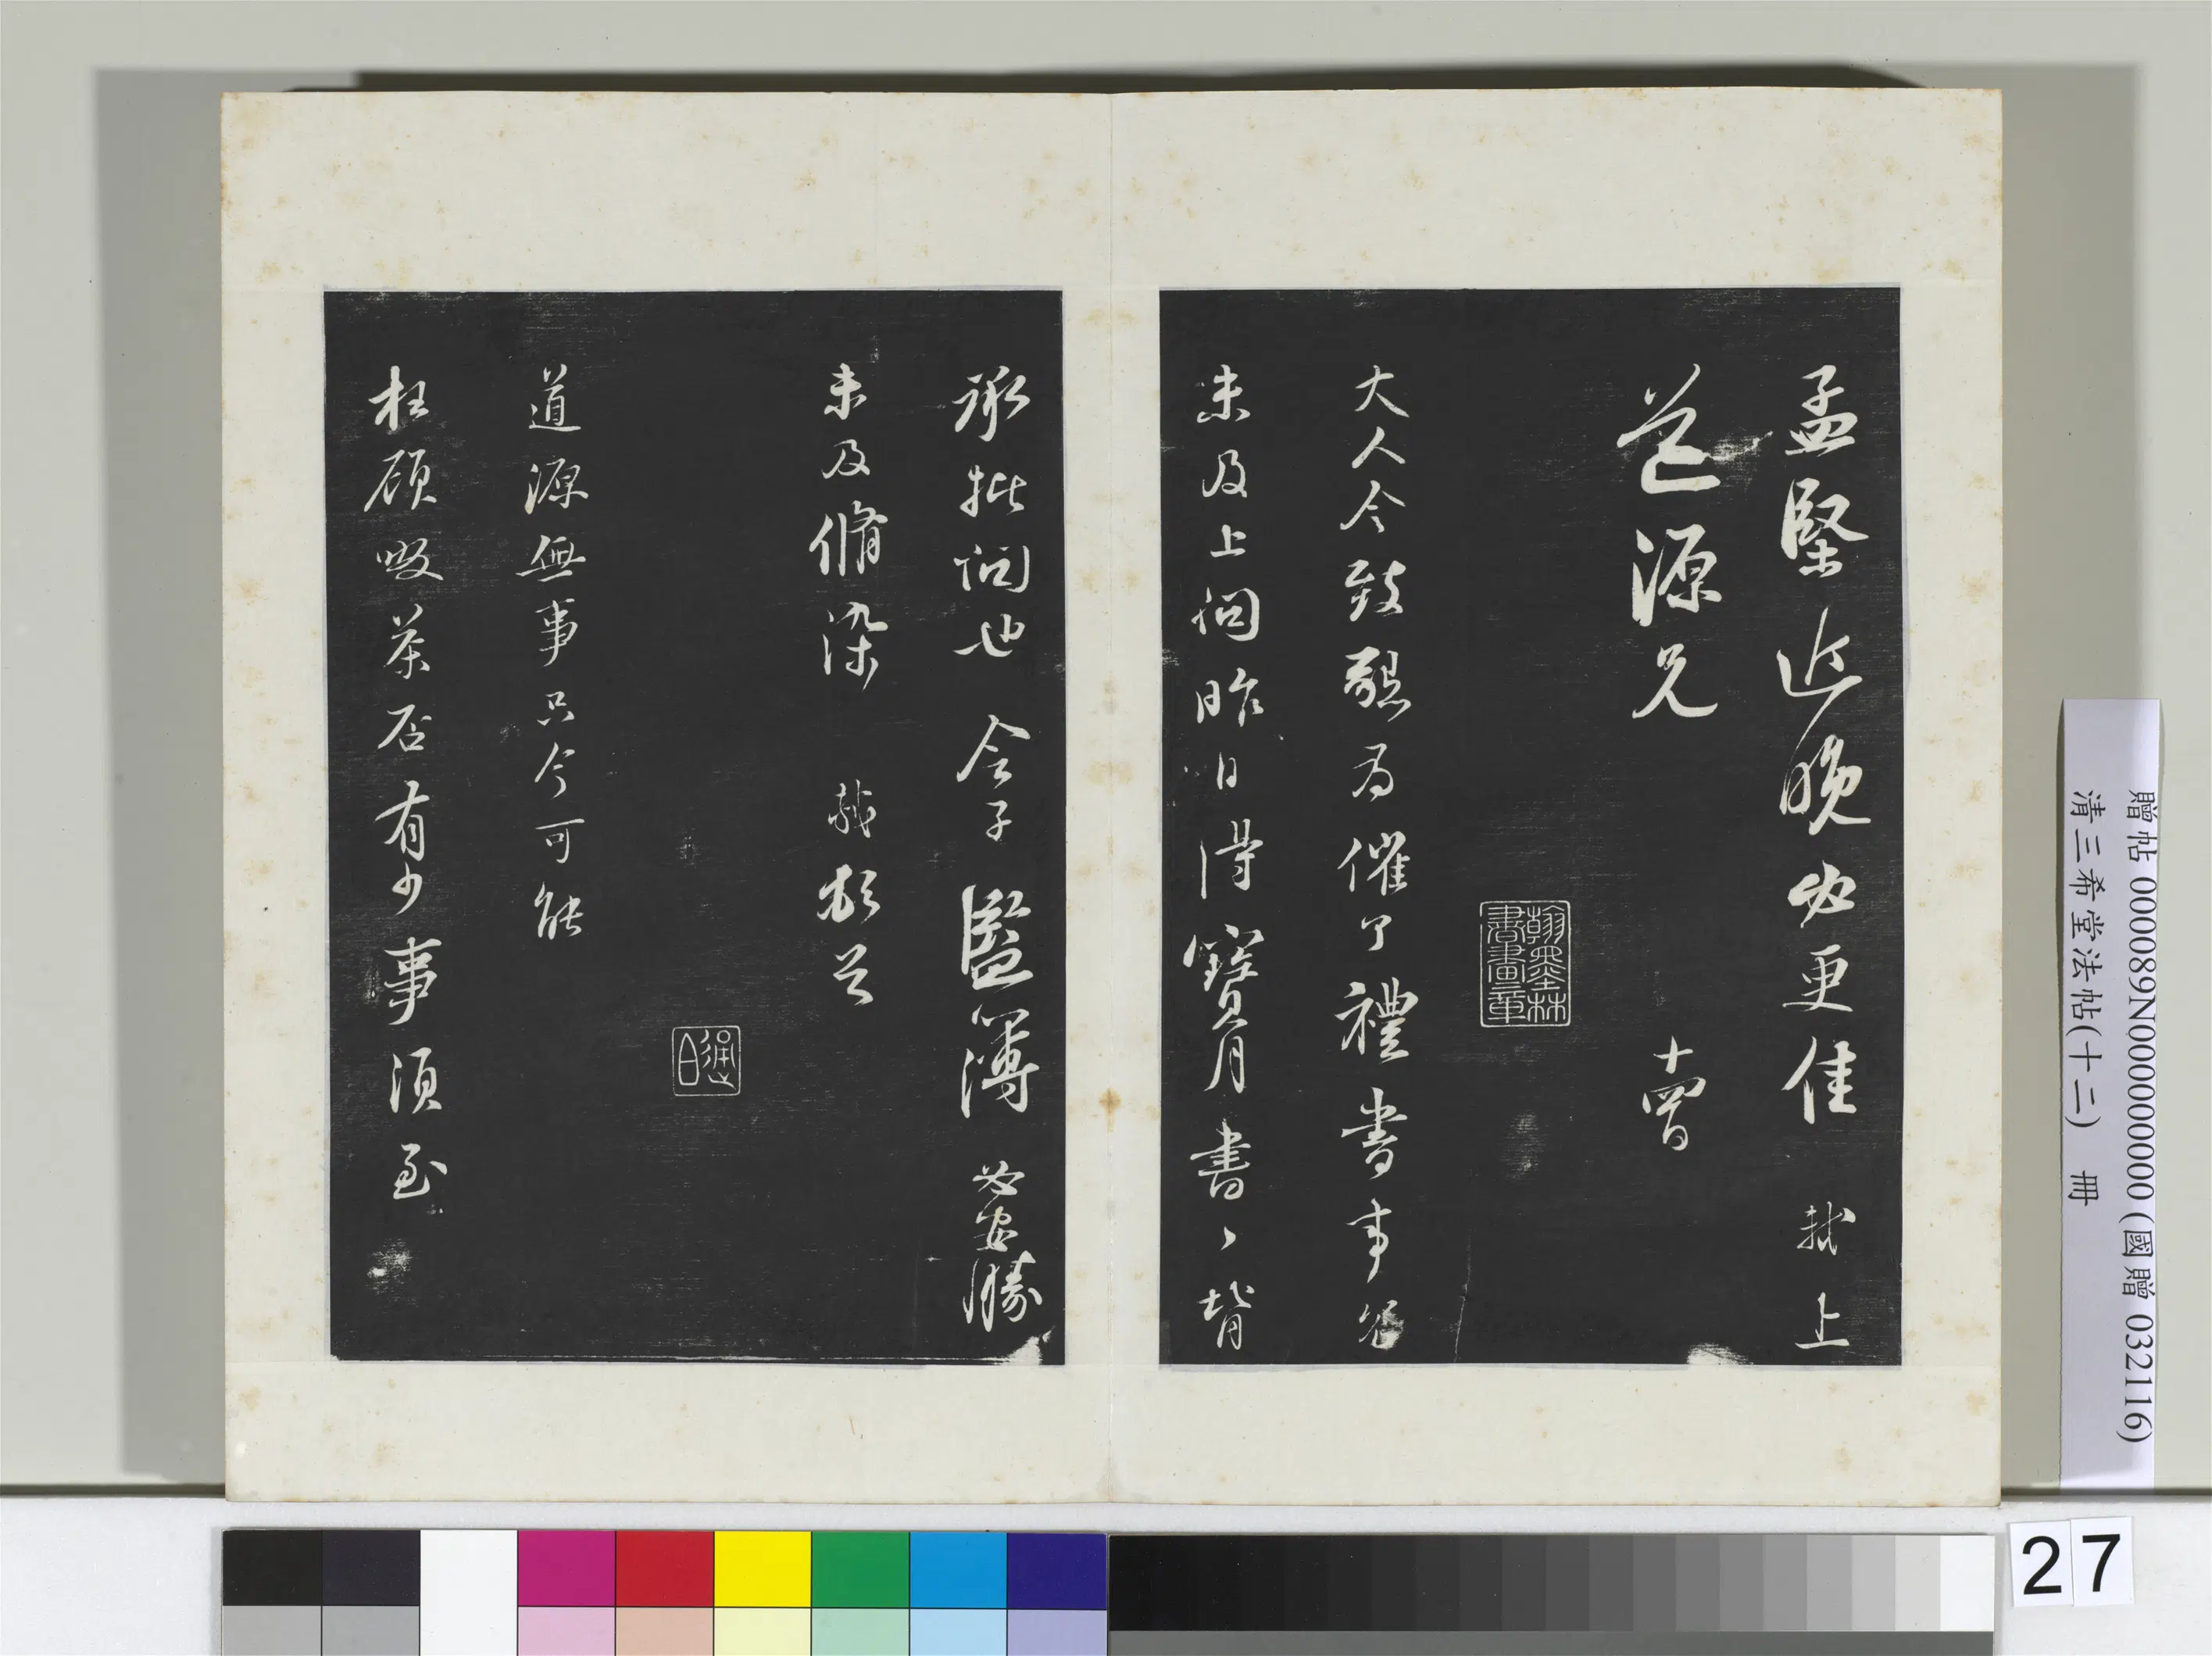 孟堅近晚必更佳 軾上
道源兄 十四日
翰墨林書畫章
大人令致懇為催了禮書事冗
未及上問昨日得寶月書〻背
承批問也令子監簿必安勝
未及脩染 軾頓首
道源無事只今可能
枉顧啜茶否有少事須至
贈帖 000089N000000000 (國贈 032116)
清三希堂法帖(十二) 冊
27